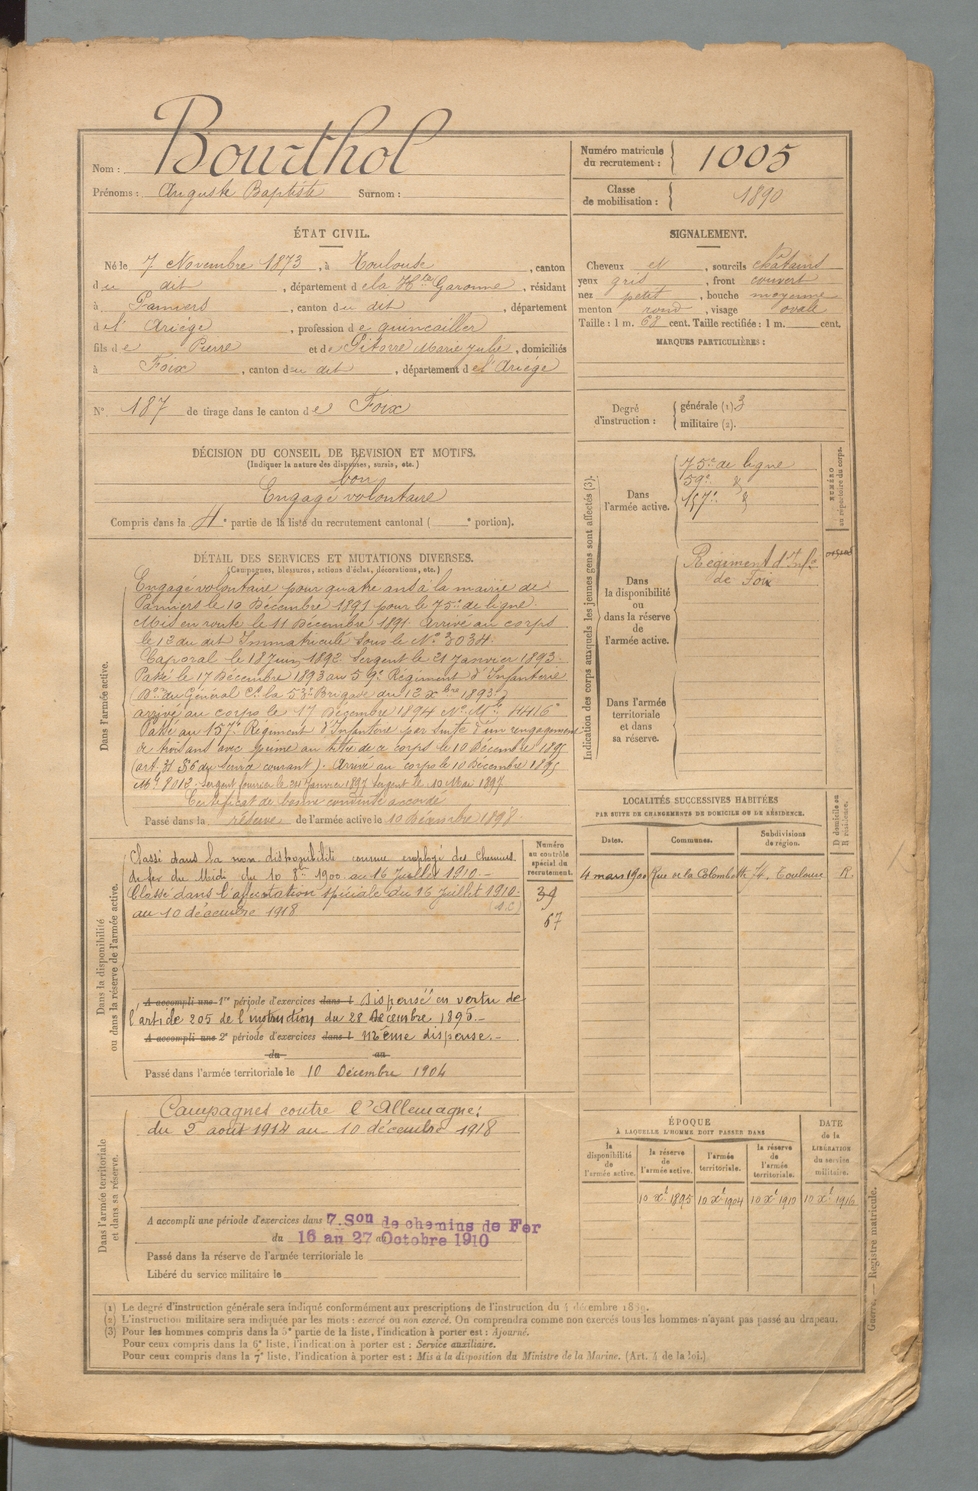 Nom : Bourthol
Prénoms : Auguste Baptiste Surnom :
Numéro matricule du recrutement : 1005
Classe de mobilisation : 1890
ÉTAT CIVIL.
Né le 7 Novembre 1873, à Toulouse, canton
du dit, département de la Hte Garonne, résidant
à Pamiers, canton du dit, département
de l' Ariège, profession de quincailler
fils de Pierre et de Pitorre Marie Julie, domiciliés
à Foix, canton du dit, département de l'Ariège
N° 187 de tirage dans le canton de Foix
SIGNALEMENT.
Cheveux et, sourcils châtains
yeux gris, front couvert
nez petit, bouche moyenne
menton rond, visage ovale
Taille : 1 m. 68 cent. Taille rectifiée : 1 m. cent.
MARQUES PARTICULIÈRES :
Degré d'instruction : générale (1). 3
militaire (2).
DÉCISION DU CONSEIL DE REVISION ET MOTIFS.
(Indiquer la nature des dispenses, sursis, etc.)
bon
Engagé volontaire
Compris dans la 4e partie de la liste du recrutement cantonal ( e portion).
DÉTAIL DES SERVICES ET MUTATIONS DIVERSES.
(Campagnes, blessures, actions d'éclat, décorations, etc.)
Dans l'armée active.
Engagé volontaire pour quatre ans à la mairie de
Pamiers le 10 Décembre 1891 pour le 75e de ligne
Mis en route le 11 Décembre 1891 Arrivé au corps
le 13 du dit Immatriculé sous le N° 3034.
Caporal le 18 Juin 1892 Sergent le 21 Janvier 1893.
Passé le 17 Décembre 1893 au 59e Régiment d'Infanterie
du Général Ct la 53e Brigade du 12 Xbre 1893
arrivé au corps le 17 Décembre 1894 N° Mle 4416
Passé au 157e Régiment d'Infanterie par suite d'un rengagement
de trois ans avec prime au titre de ce corps le 10 Décembre 1895
Arrivé au corps le 10 Décembre 1895
Mle 8012. Sergent fourrier le 24 Janvier 1897 Sergent le 10 Mai 1897
Certificat de bonne conduite accordé
Passé dans la réserve de l'armée active le 10 Décembre 1898
Indication des corps auxquels les jeunes gens sont affectés (3).
Dans l'armée active.
75e de ligne
59e
157e
NUMÉRO au répertoire du corps.
Dans la disponibilité ou dans la réserve de l'armée active.
Régiment d'Infie
de Foix
Dans l'armée territoriale et dans sa réserve.
Dans la disponibilité ou dans la réserve de l'armée active.
Classé dans la non disponibilité comme employé des chemins
de fer du Midi du 10 8bre 1900 au 16 Juillet 1910 -
Classé dans l'affectation spéciale du 16 Juillet 1910
au 10 décembre 1918 (S.C)
Numéro au contrôle spécial du recrutement.
34
67
A accompli une 1re période d'exercices dans l Dispensé en vertu de
l'article 205 de l'instruction du 28 Décembre 1895.-
A accompli une 2e période d'exercices dans l Même dispense.-
du au
Passé dans l'armée territoriale le 10 Décembre 1904
LOCALITÉS SUCCESSIVES HABITÉES
PAR SUITE DE CHANGEMENTS DE DOMICILE OU DE RÉSIDENCE.
Dates. Communes. Subdivisions de région. D domicile ou R résidence.
4 mars 1900 Rue de la Colombette Toulouse R
Dans l'armée territoriale et dans sa réserve.
Campagnes contre l'Allemagne:
du 2 août 1914 au 10 décembre 1918
A accompli une période d'exercices dans 7e Son de chemins de Fer
du 16 au 27 Octobre 1910
Passé dans la réserve de l'armée territoriale le
Libéré du service militaire le
ÉPOQUE
À LAQUELLE L'HOMME DOIT PASSER DANS
la disponibilité de l'armée active. la réserve de l'armée active. l'armée territoriale. la réserve de l'armée territoriale. DATE de la LIBÉRATION du service militaire.
10 Xe 1895 10 Xe 1904 10 Xe 1910 10 Xe 1916
(1) Le degré d'instruction générale sera indiqué conformément aux prescriptions de l'instruction du 4 décembre 1889.
(2) L'instruction militaire sera indiquée par les mots : exercé ou non exercé. On comprendra comme non exercés tous les hommes n'ayant pas passé au drapeau.
(3) Pour les hommes compris dans la 5e partie de la liste, l'indication à porter est : Ajourné.
Pour ceux compris dans la 6e liste, l'indication à porter est : Service auxiliaire.
Pour ceux compris dans la 7e liste, l'indication à porter est : Mis à la disposition du Ministre de la Marine. (Art. 4 de la loi.)
Guerre. — Registre matricule.